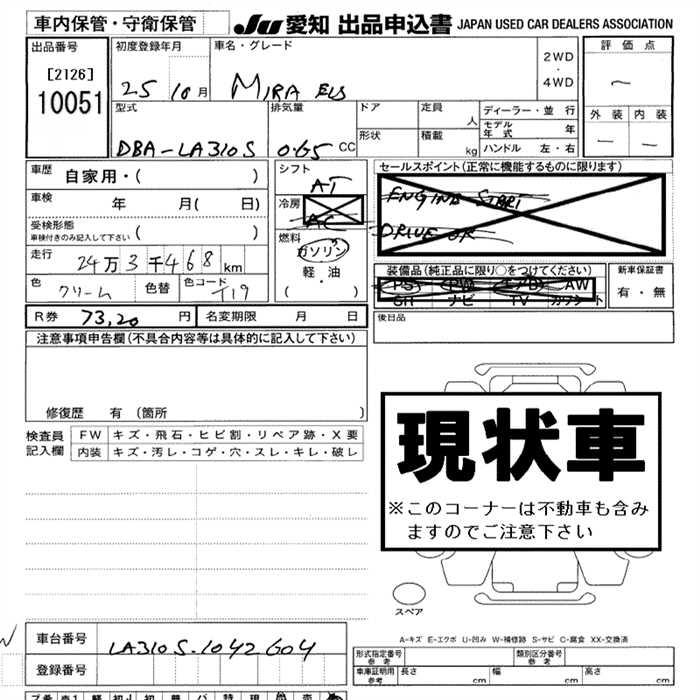 車内保管・守衛保管
JU 愛知 出品申込書 JAPAN USED CAR DEALERS ASSOCIATION
出品番号
[2126]
10051
初度登録年月
25 10月
車名・グレード
MIRA ES
2WD
・
4WD
評価点
外装 内装
型式
DBA-LA310S
排気量
0.65 CC
ドア
定員
人
形状
積載
kg
ディーラー・並行
モデル年式 年
ハンドル 左・右
車歴 自家用・( )
車検 年 月( 日)
受検形態
車検付きのみ記入して下さい ( )
走行
24万3千468km
色 クリーム 色替 色コード T19
シフト
AT
冷房
AC
燃料
ガソリン
軽・油
( )
セールスポイント(正常に機能するものに限ります)
ENGINE START
DRIVE OK
装備品(純正品に限り○をつけてください)
PS PW エアB AW
SR ナビ TV カワシート
新車保証書
有・無
R券 73,20 円 名変期限 月 日
後日品
注意事項申告欄(不具合内容等は具体的に記入して下さい)
修復歴 有 (箇所 )
検査員記入欄
FW キズ・飛石・ヒビ割・リペア跡・X要
内装 キズ・汚レ・コゲ・穴・スレ・キレ・破レ
現状車
※このコーナーは不動車も含み
ますのでご注意下さい
スペア
A-キズ E-エクボ U-凹み W-補修跡 S-サビ C-腐食 XX-交換済
車台番号 LA310S-1042604
登録番号
形式指定番号
参考
類別区分番号
参考
車庫証明用
参考
長さ cm 幅 cm 高さ cm